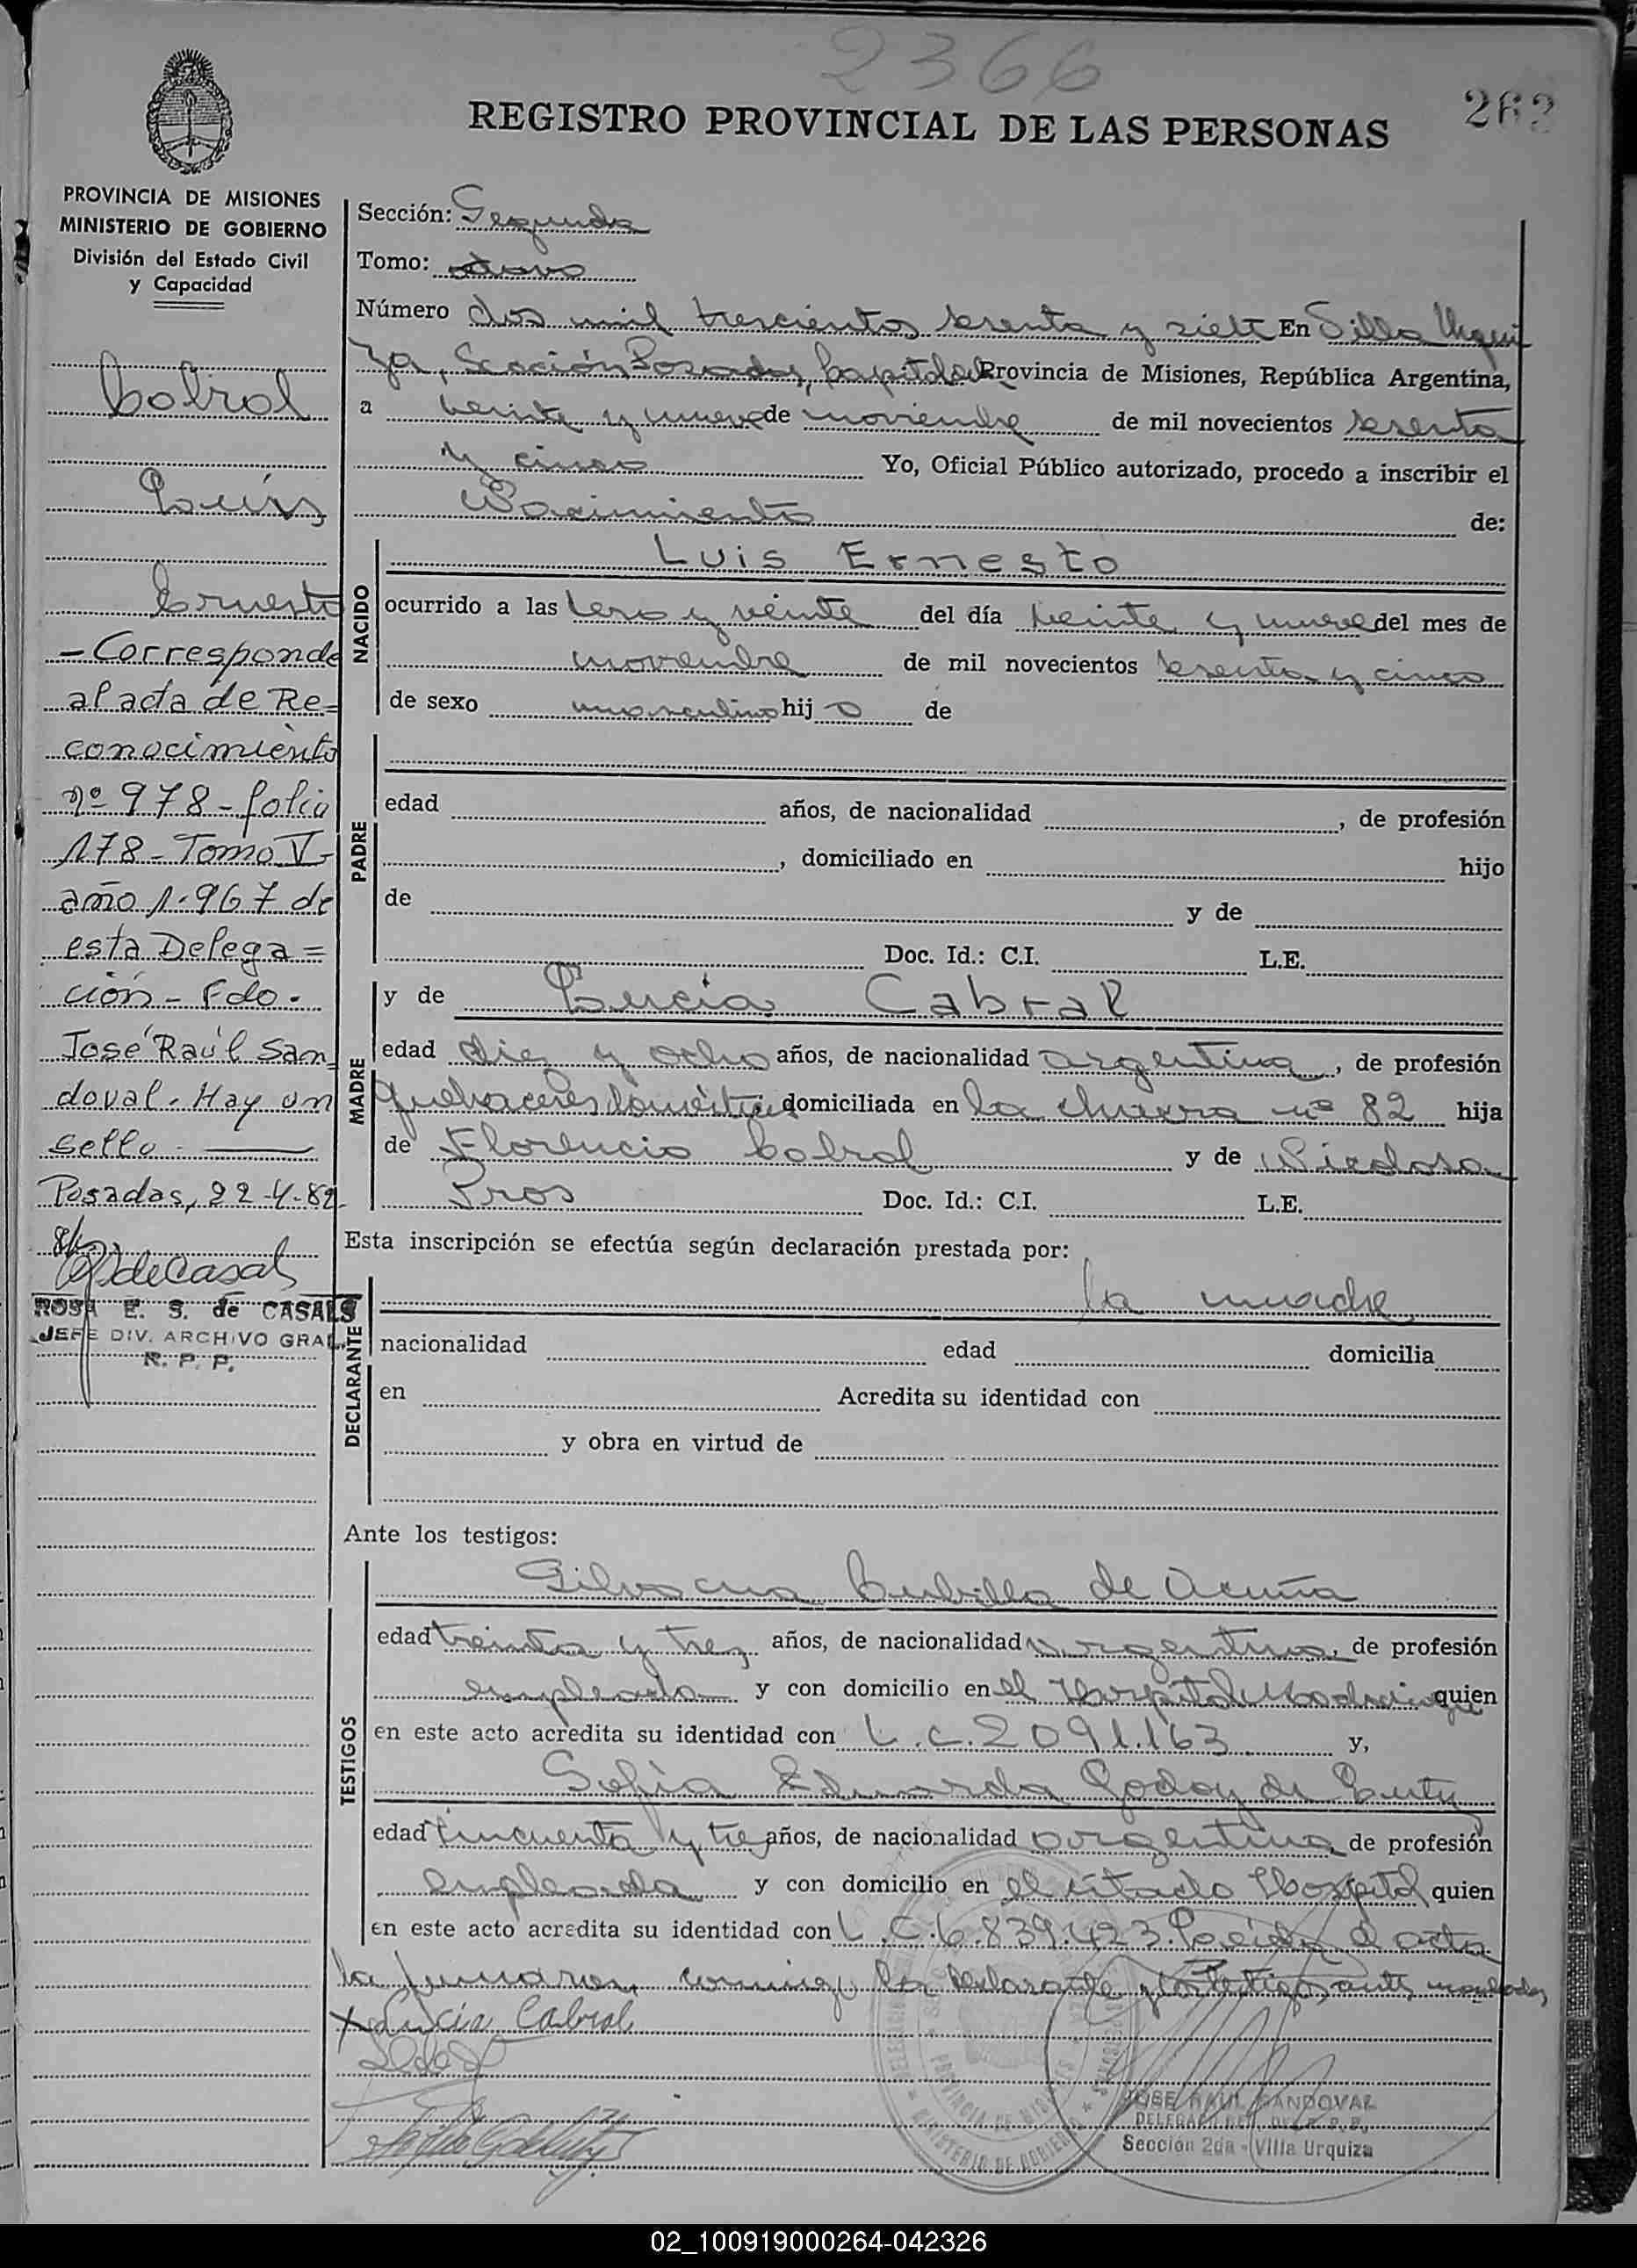 2366
262
REGISTRO PROVINCIAL DE LAS PERSONAS
PROVINCIA DE MISIONES
MINISTERIO DE GOBIERNO
División del Estado Civil
y Capacidad
Cabral
Luis
Ernesto
- Corresponde
al acta de Re=
conocimiento
nº 978 - folio
178 - Tomo V -
año 1.967 de
esta Delega=
ción - Fdo.
José Raúl San
doval. Hay un
sello.
Posadas, 22-4-82
ROSA E. S. de CASALS
JEFE DIV. ARCHIVO GRAL.
R. P. P.
Sección: Segunda
Tomo: octavo
Número dos mil trescientos sesenta y siete En Villa Urqui
za, Sección Posadas, Capital de Provincia de Misiones, República Argentina,
a veinte y nueve de noviembre de mil novecientos sesenta
y cinco Yo, Oficial Público autorizado, procedo a inscribir el
Nacimiento de:
NACIDO
Luis Ernesto
ocurrido a las cero y veinte del día veinte y nueve del mes de
noviembre de mil novecientos sesenta y cinco
de sexo masculino hij o de
PADRE
edad años, de nacionalidad , de profesión
, domiciliado en hijo
de y de
Doc. Id.: C.I. L.E.
MADRE
y de Lucia Cabral
edad diez y ocho años, de nacionalidad argentina, de profesión
quehaceres domésticos domiciliada en la chacra nº 82 hija
de Florencio Cabral y de
Doc. Id.: C.I. L.E.
Esta inscripción se efectúa según declaración prestada por:
DECLARANTE
la madre
nacionalidad edad domicilia
en Acredita su identidad con
y obra en virtud de
Ante los testigos:
TESTIGOS
Silvana Cubilla de Acuña
edad treinta y tres años, de nacionalidad argentina, de profesión
empleada y con domicilio en el Hospital Madariaga quien
en este acto acredita su identidad con L.C. 2091.163 y,
Sofia Eduarda Godoy de
edad cincuenta y tres años, de nacionalidad argentina, de profesión
empleada y con domicilio en el citado Hospital quien
en este acto acredita su identidad con L.C. 6.839.423. Leida el acta
la firmaron conmigo la declarante y los testigos antes nombrados
x Lucia Cabral
JOSE RAUL SANDOVAL
Sección 2da - Villa Urquiza
02_100919000264-042326